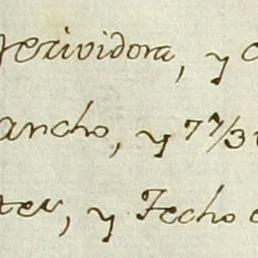 Jerividora, y
ancho, y 7 7/3
ter, y Fecho